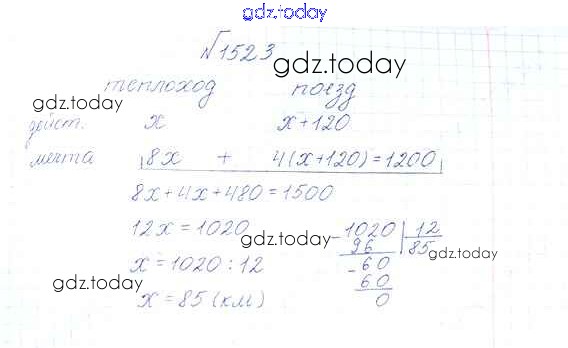 gdz.today
№1523
gdz.today
теплоход поезд
gdz.today
дейст. x x+120
мечта 8x + 4(x+120)=1200
8x+4x+480=1500
12x=1020
gdz.today
1020 | 12
- 96 85
gdz.today
x=1020:12
- 60
gdz.today
60
x=85(км)
0